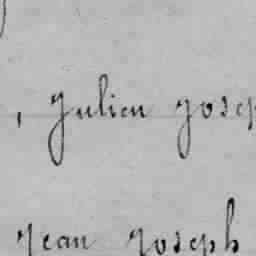 , Julien Josep
Jean Joseph